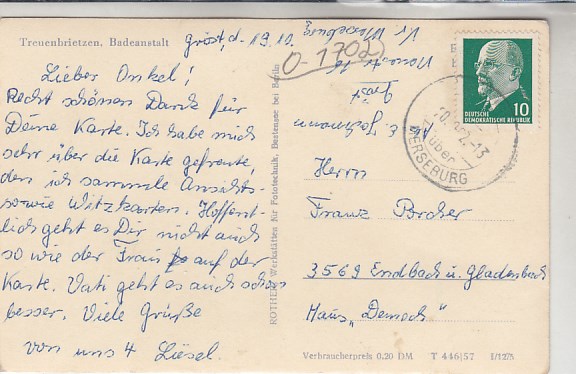 Treuenbrietzen, Badeanstalt
Gröst, d. 19.10.
Lieber Onkel!
Recht schönen Dank für
Deine Karte. Ich habe mich
sehr über die Karte gefreut,
den ich sammle Ansichts-
sowie Witzkarten. Hoffent-
lich geht es Dir nicht auch
so wie der Frau auf der
Karte. Vati geht es auch schon
besser. Viele Grüße
von uns 4 Liesel.
ROTHE Werkstätten für Fototechnik, Bestensee bei Berlin
0-1702
Kr. Merseburg
Gröst
DEUTSCHE
DEMOKRATISCHE REPUBLIK
10
über
MERSEBURG
Herrn
Franz Porcher
3569 Endbach ü. Gladenbach
Haus „Demeck"
Verbraucherpreis 0,20 DM T 446|57 I/1275